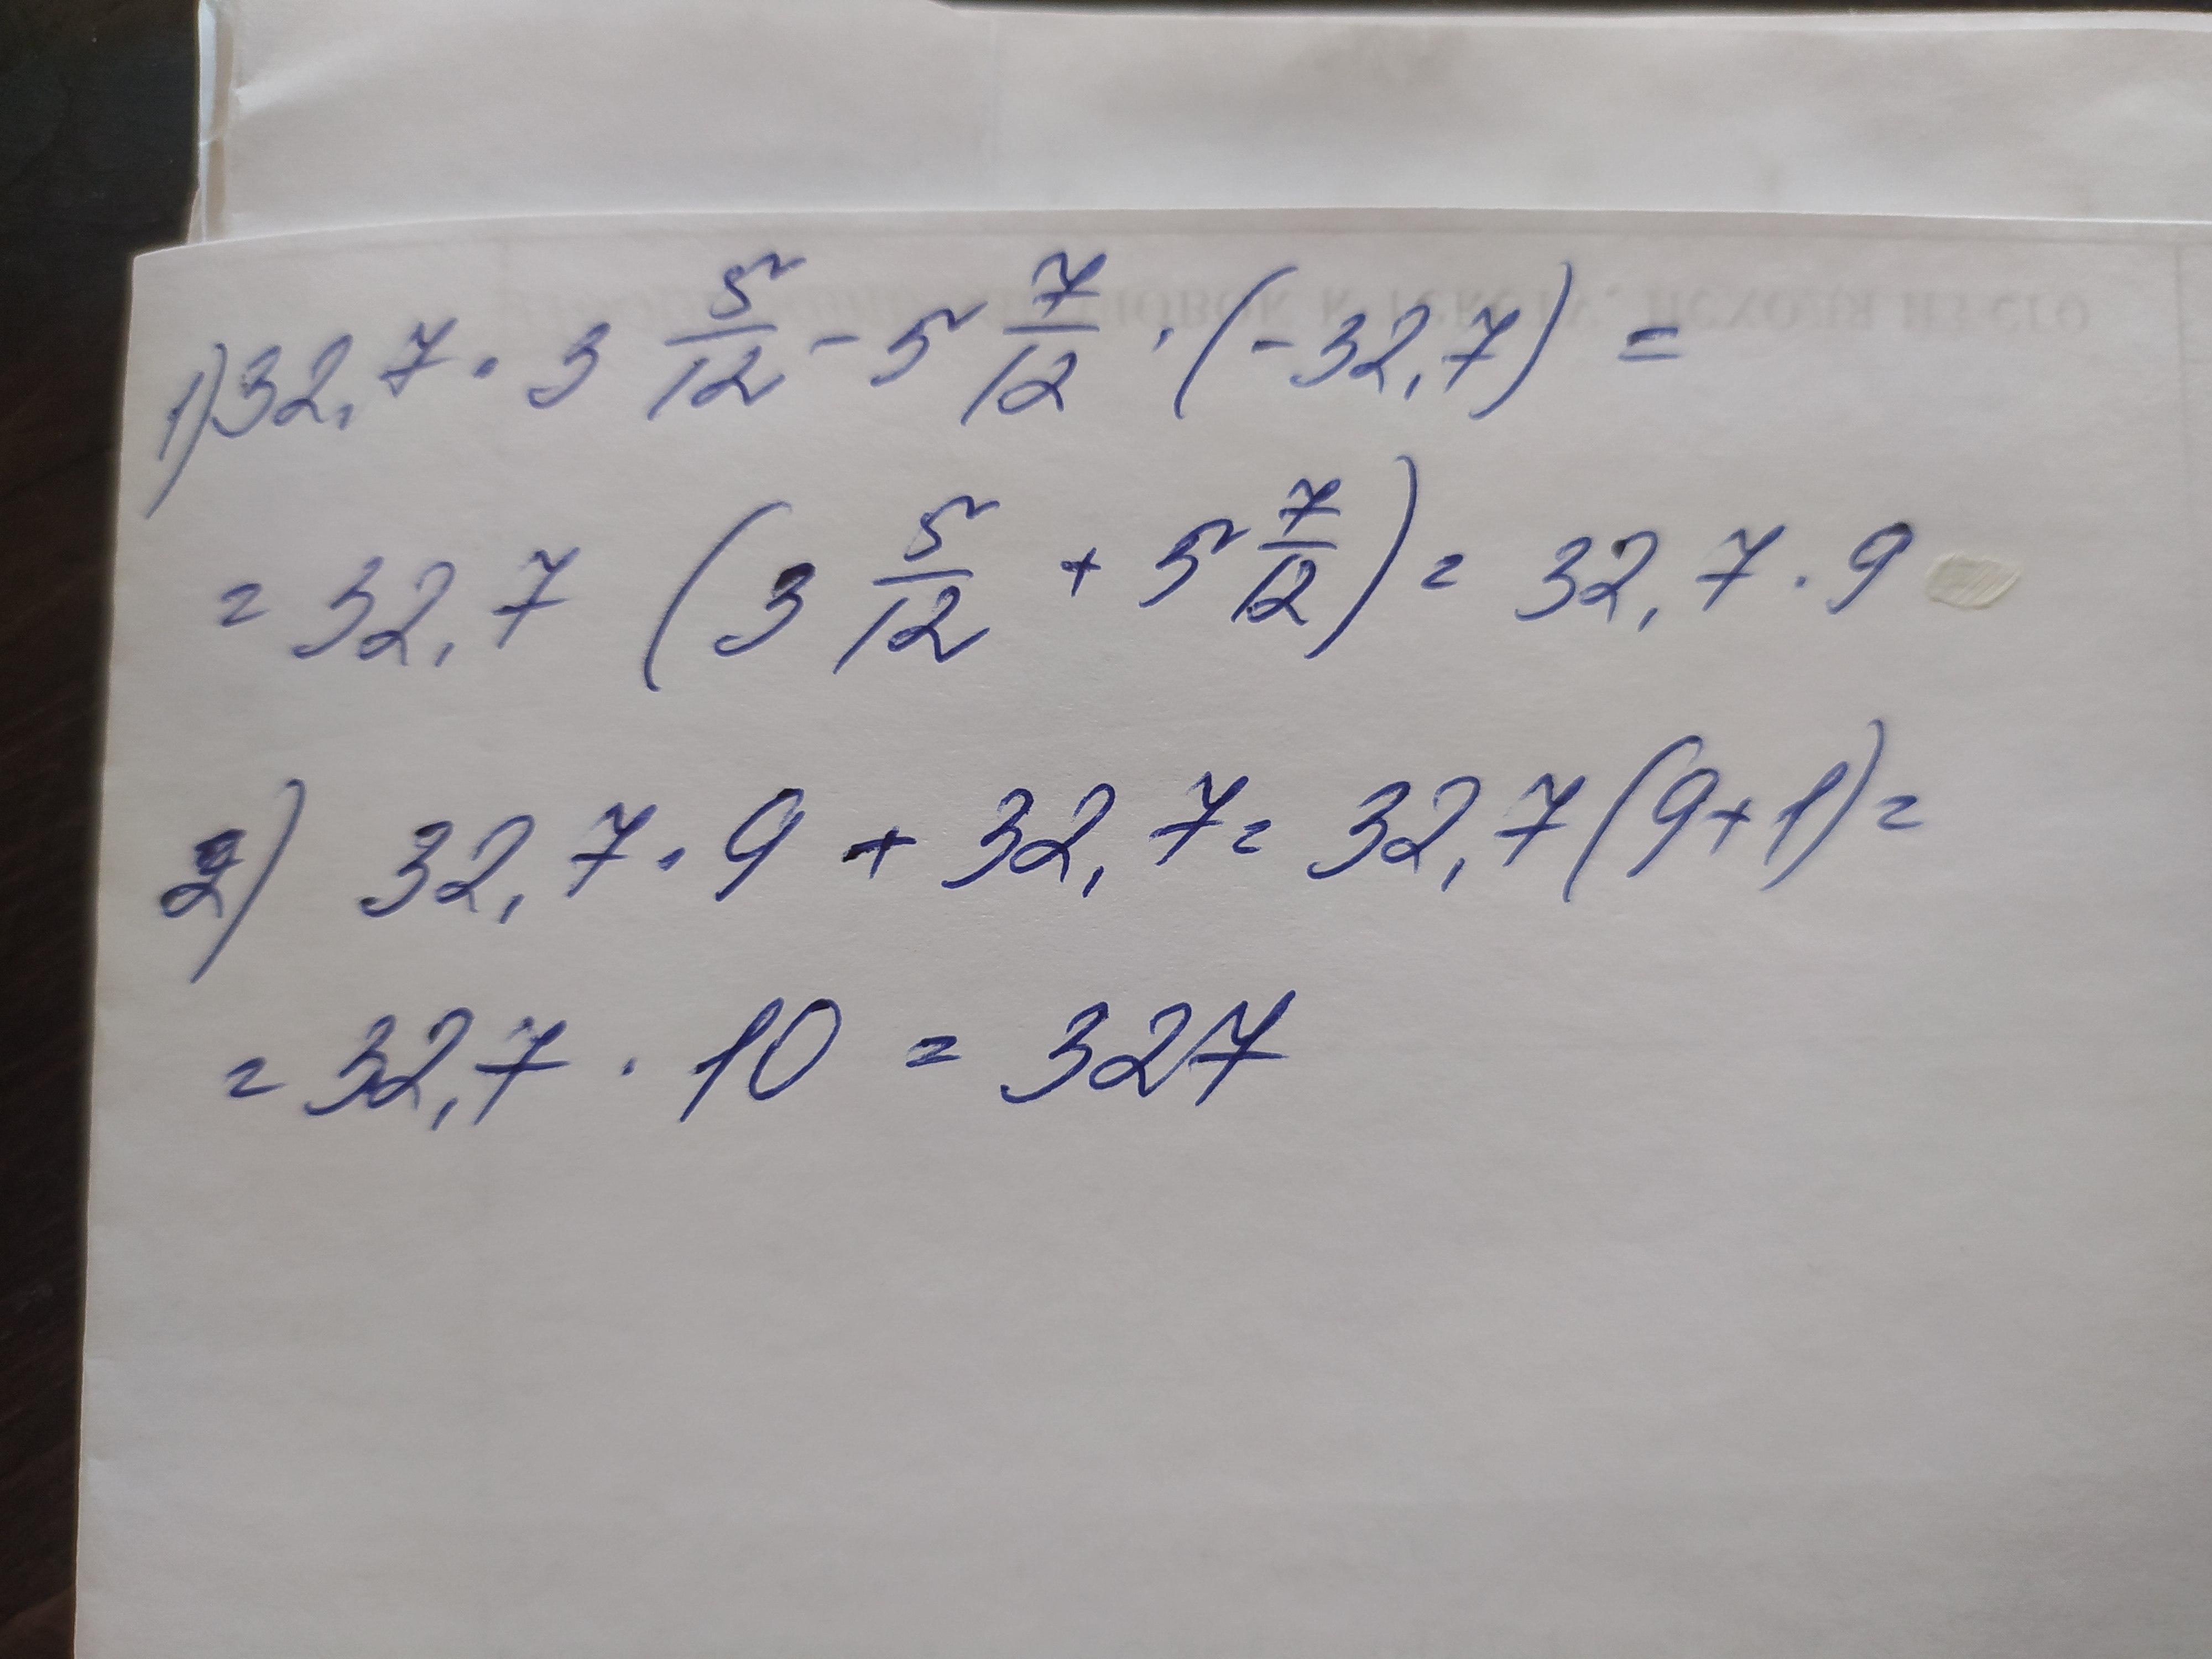 1) 32,7 · 3 5/12 - 5 7/12 · (-32,7) =
= 32,7 (3 5/12 + 5 7/12) = 32,7 · 9
2) 32,7 · 9 + 32,7 = 32,7 (9+1) =
= 32,7 · 10 = 327